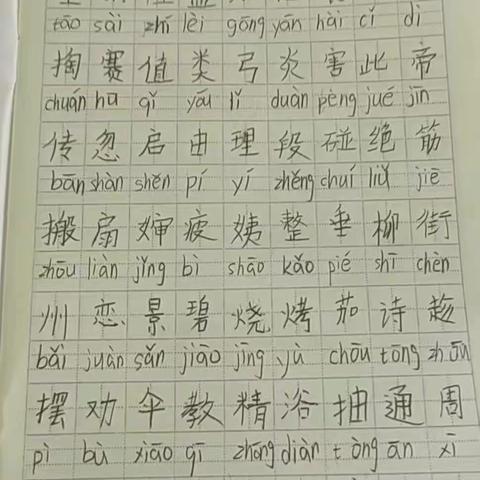 tāo sài zhí lèi gōng yán hài cǐ dì
掏 赛 值 类 弓 炎 害 此 帝
chuán hū qǐ yóu lǐ duàn pèng jué jīn
传 忽 启 由 理 段 碰 绝 筋
bān shàn shěn pí yí zhěng chuí liǔ jiē
搬 扇 婶 疲 姨 整 垂 柳 街
zhōu liàn jǐng bì shāo kǎo pié shī chèn
州 恋 景 碧 烧 烤 茄 诗 趁
bǎi juàn sǎn jiāo jīng yù chōu tōng zhōu
摆 劝 伞 教 精 浴 抽 通 周
pì bù xiāo qī zhōng diàn tòng ān xī